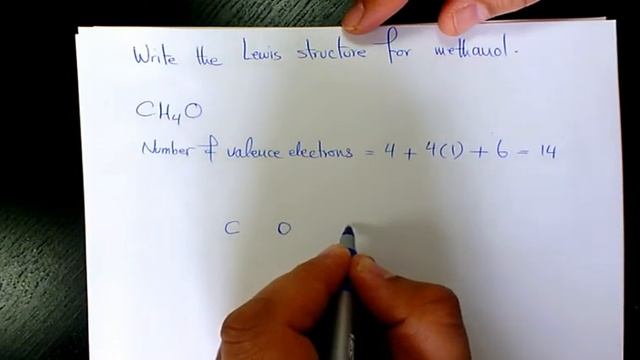 Write the Lewis structure for methanol.
CH₄O
Number of valence electrons = 4 + 4(1) + 6 = 14
C O